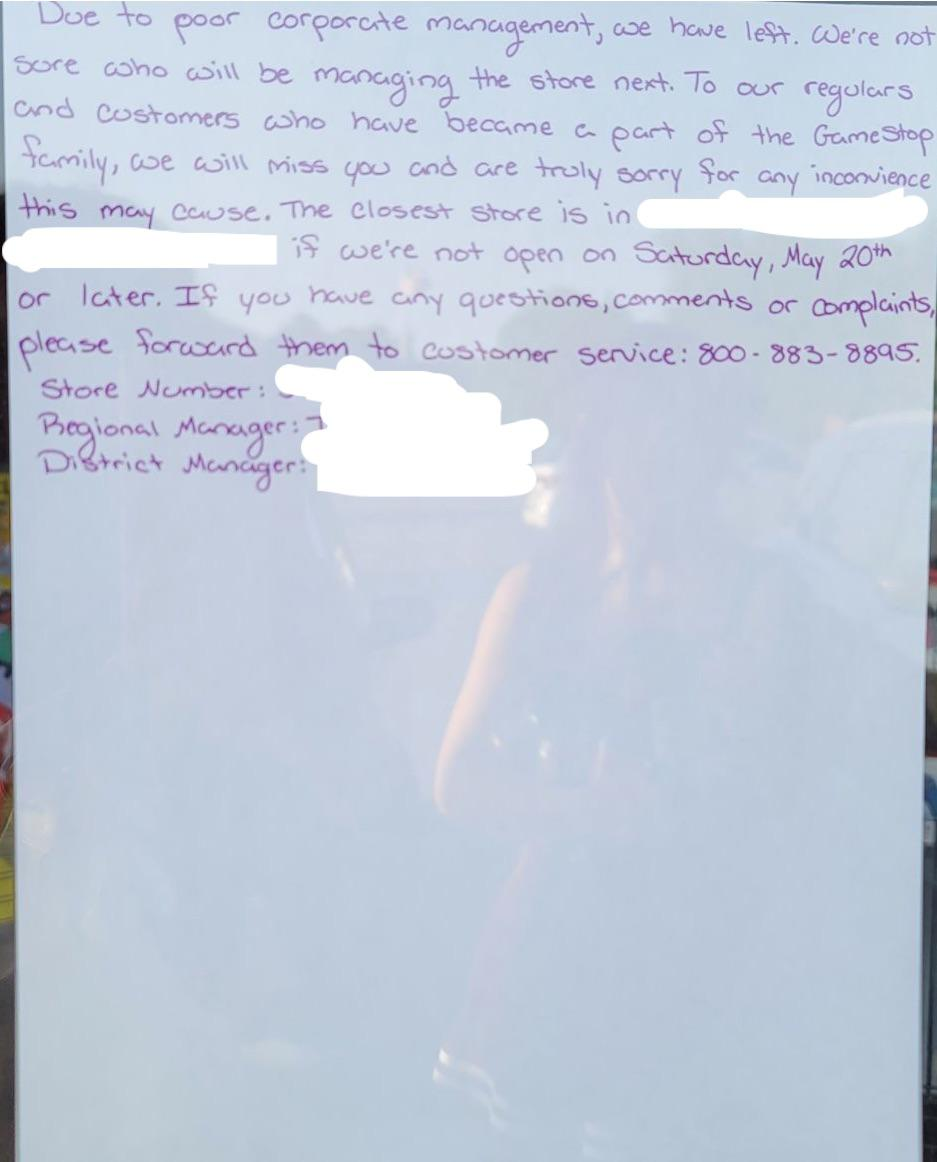 Due to poor corporate management, we have left. We're not
sure who will be managing the store next. To our regulars
and customers who have became a part of the GameStop
family, we will miss you and are truly sorry for any inconvience
this may cause. The closest store is in
if we're not open on Saturday, May 20th
or later. If you have any questions, comments or complaints,
please forward them to customer service: 800-883-8895.
Store Number:
Regional Manager:
District Manager: